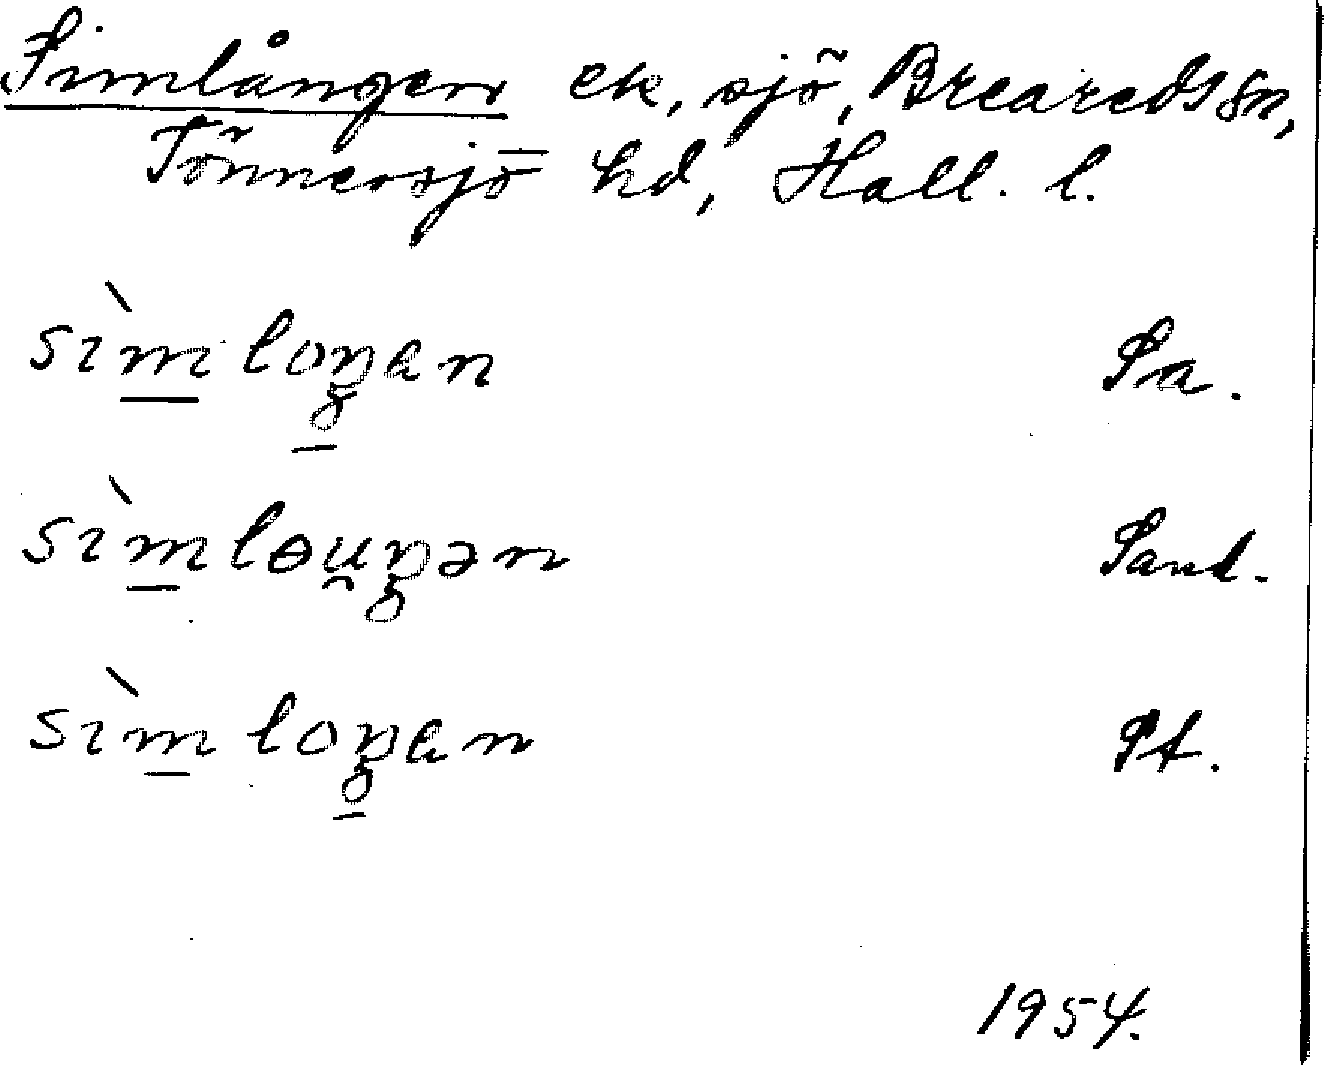 Simlången ek, sjö, Breareds sn,
Tönnersjö hd, Hall. l.
sìmloŋan Sa.
sìmlɵu̯ŋən Sand.
sìmloŋan Pt.
1954.